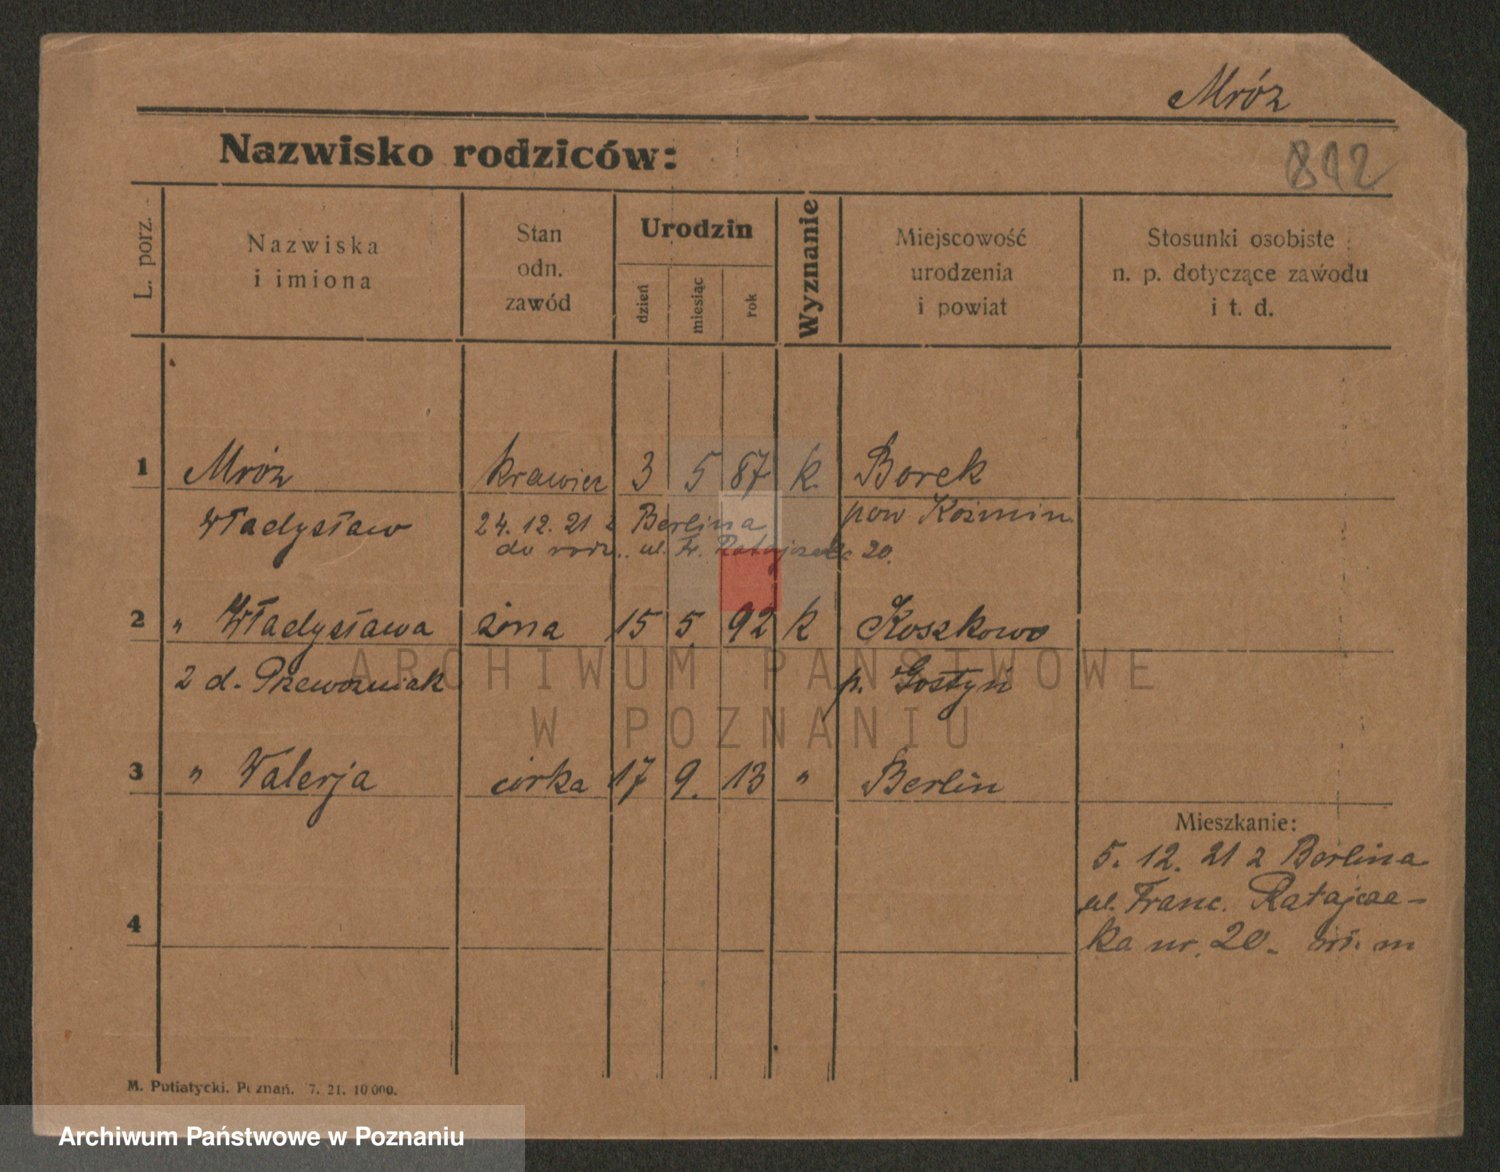 Mróz
Nazwisko rodziców:
812
L. porz.
Nazwiska
i imiona
Stan
odn.
zawód
Urodzin
dzień
miesiąc
rok
Wyznanie
Miejscowość
urodzenia
i powiat
Stosunki osobiste
n. p. dotyczące zawodu
i t. d.
1 Mróz krawiec 3 5 87 k. Borek
Władysław 24. 12. 21 z Berlina pow Koźmin
do rodz. ul. Fr. Ratajczaka 20.
2 " Władysława żona 15 5 92 k Koszkowo
z d. Przewoźniak p. Gostyń
ARCHIWUM PAŃSTWOWE
W POZNANIU
3 " Walerja córka 17 9. 13 " Berlin
Mieszkanie:
5. 12. 21 z Berlina
ul. Franc. Ratajcza-
4
ka nr. 20. m
M. Putiatycki. Poznań. 7. 21. 10 000.
Archiwum Państwowe w Poznaniu